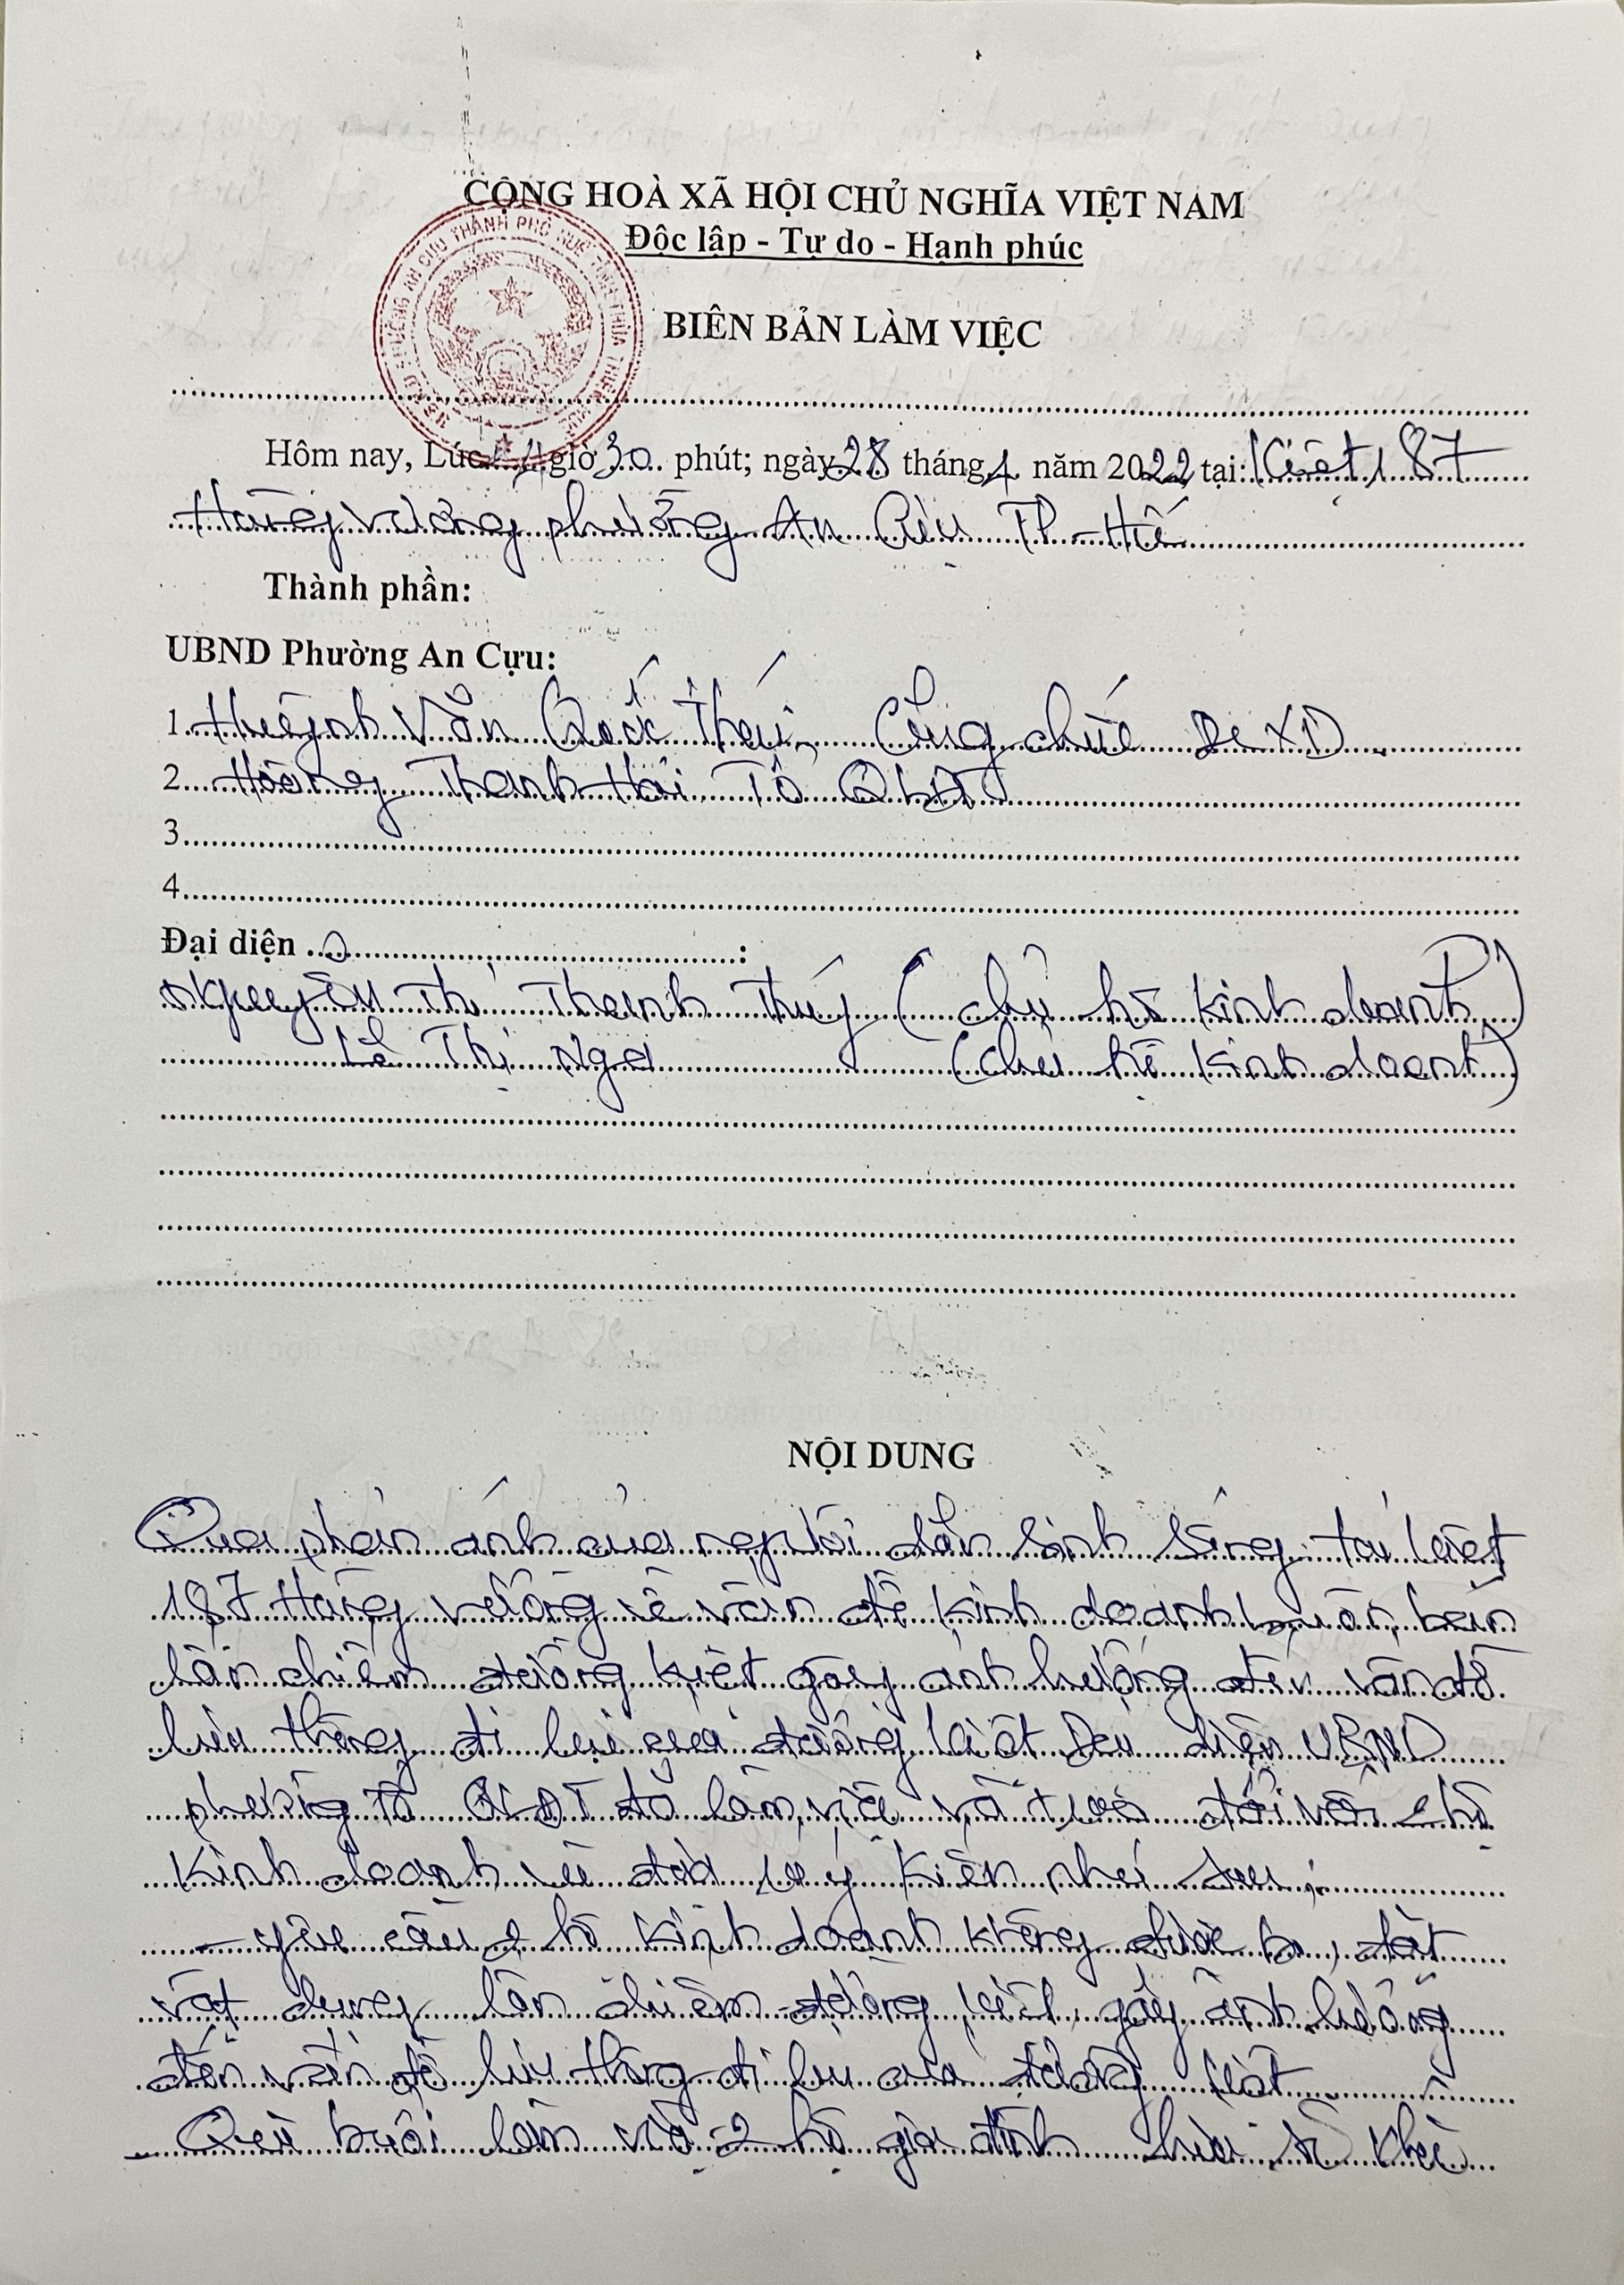 CỘNG HOÀ XÃ HỘI CHỦ NGHĨA VIỆT NAM
Độc lập - Tự do - Hạnh phúc
BIÊN BẢN LÀM VIỆC
PHƯỜNG AN CỰU THÀNH PHỐ HUẾ TỈNH THỪA THIÊN HUẾ
Hôm nay, Lúc 14 giờ 30 phút; ngày 28 tháng 4 năm 2022 tại: Kiệt 187
Hùng Vương phường An Cựu TP Huế
Thành phần:
UBND Phường An Cựu:
1. Huỳnh Văn Quốc Thái, Công chức ĐC XD
2. Hoàng Thanh Hải Tổ QLĐT
3
4
Đại diện :
Nguyễn Thị Thanh Thúy (chủ hộ kinh doanh)
Lê Thị Nga (chủ hộ kinh doanh)
NỘI DUNG
Qua phản ánh của người dân sinh sống tại kiệt
187 Hùng Vương về vấn đề kinh doanh buôn bán
lấn chiếm đường kiệt gây ảnh hưởng đến vấn đề
lưu thông đi lại qua đường kiệt Đại diện UBND
phường Tổ QLĐT đã làm việc đối với 2 hộ
kinh doanh và đưa ra ý kiến như sau:
- yêu cầu 2 hộ kinh doanh không được đặt
vật dụng lấn chiếm đường kiệt, gây ảnh hưởng
đến vấn đề lưu thông đi lại của đường kiệt
- Qua buổi làm việc 2 hộ gia đình